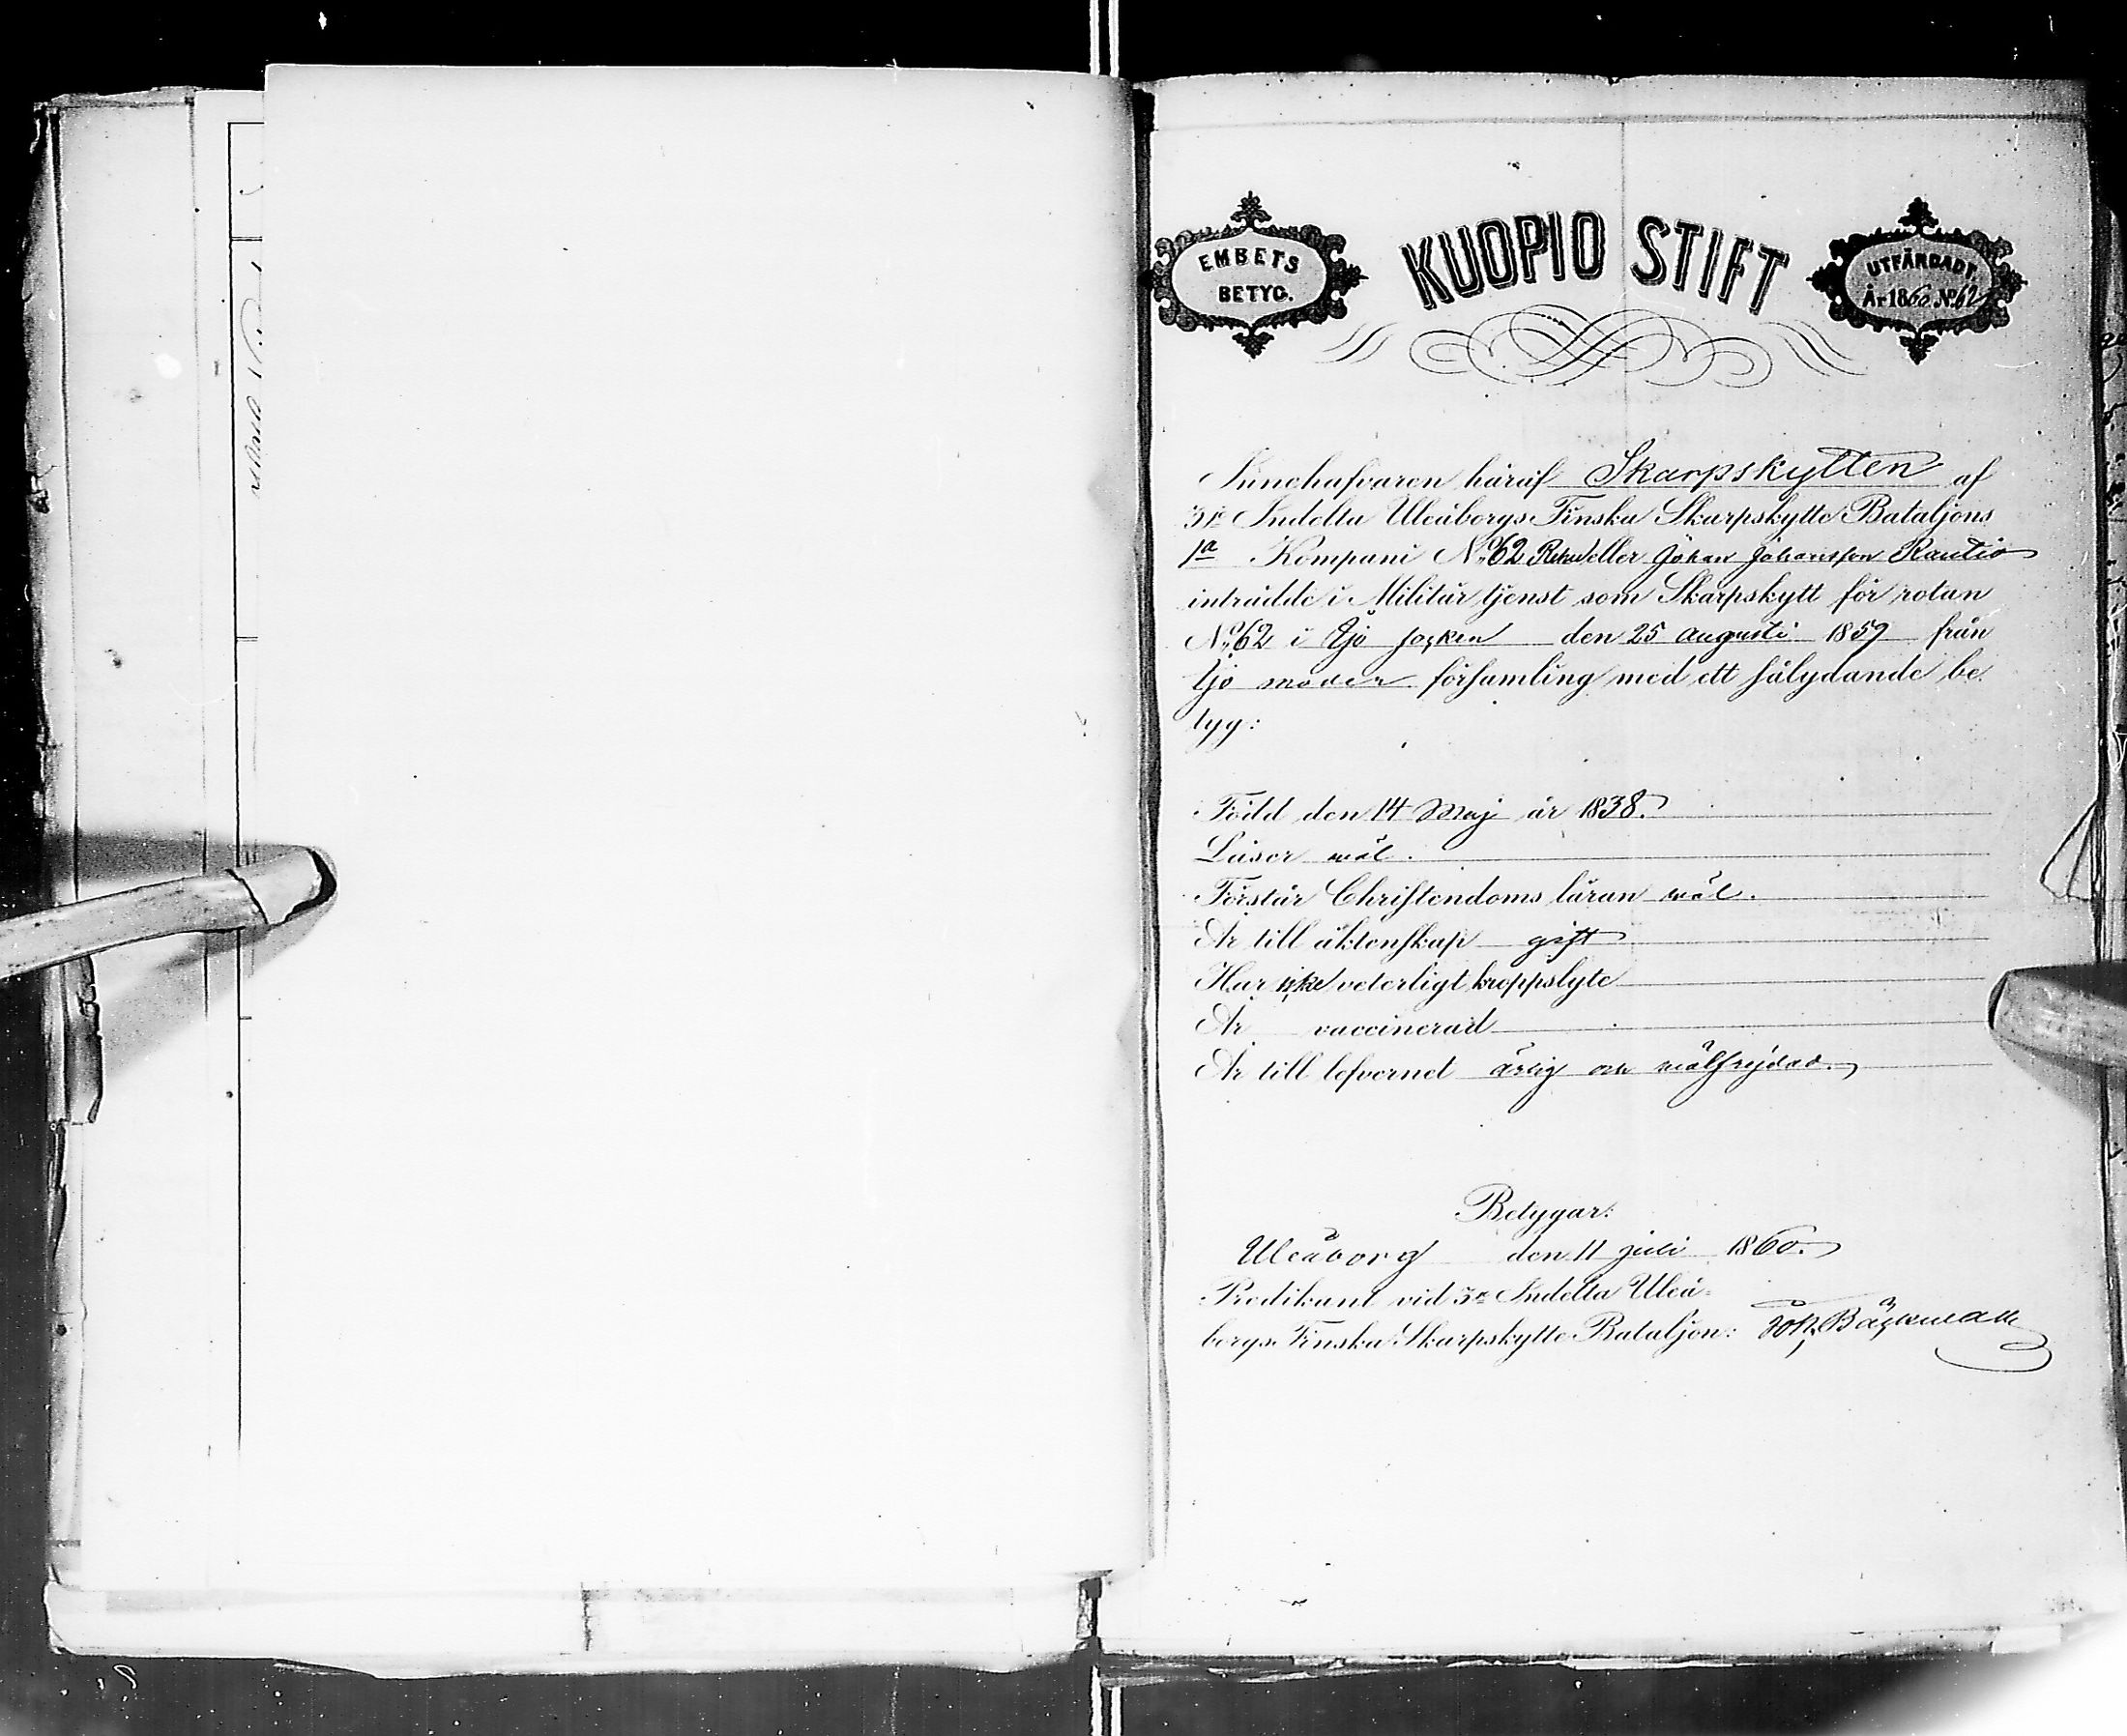 EMBETS
BETYG.
KUOPIO STIFT
UTFÄRDADT.
År 1860 No 62
Innehafvaren häraf Skarpskytten af
3je Indelta Uleåborgs Finska Skarpskytte Bataljons
1a Kompani No 62 eller Johan Johansson Rautio
inträdde i Militär tjenst som Skarpskytt för rotan
No 62 i Ijo socken den 25 augusti 1859 från
Ijo moder församling med ett sålydande be
tyg:
Född den 14 Maj år 1838.
Läser väl.
Förstår Christendoms läran väl.
Är till äktenskap gift
Har icke veterligt kroppslyte
Är vaccinerad
Är till lefvernet ärlig och välfrejdad.
Betygar:
Uleåborg den 11 juli 1860.
Predikant vid 3e Indelta Uleå-
borgs Finska Skarpskytte Bataljon: Joh. Bäckman